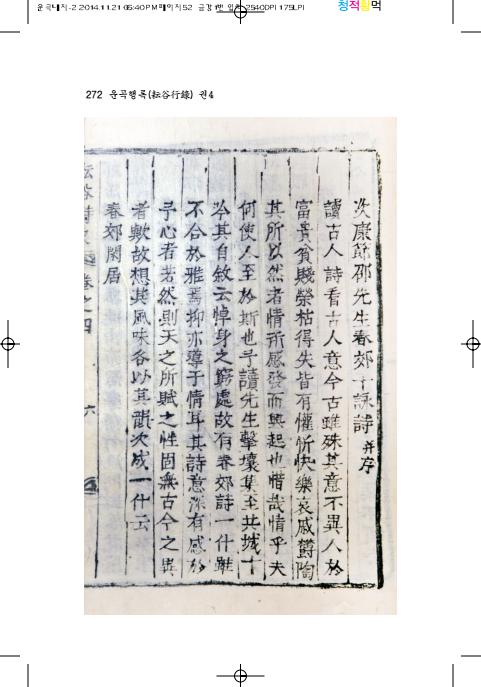 운곡내지-2 2014.11.21 06:40 PM 페이지52
2540DPI 175LPI
청적황먹
272 운곡행록(耘谷行錄) 권4
次康節邵先生春郊十詠詩 并序
讀古人詩看古人意今古雖殊其意不異人於
富貴貧賤榮枯得失皆有懽忻快樂哀戚欝陶
其所以然者情所感發而興起也惜哉情乎夫
何使人至於斯也予讀先生擊壤集至共城十
吟其自敘云悼身之窮處故有春郊詩一什雖
不合於雅焉抑亦導于情耳其詩意深有感於
予心者若然則天之所賦之性固無古今之異
者歟故想其風味各以其韻次成一什云
春郊閑居
耘谷詩史 卷之四 六